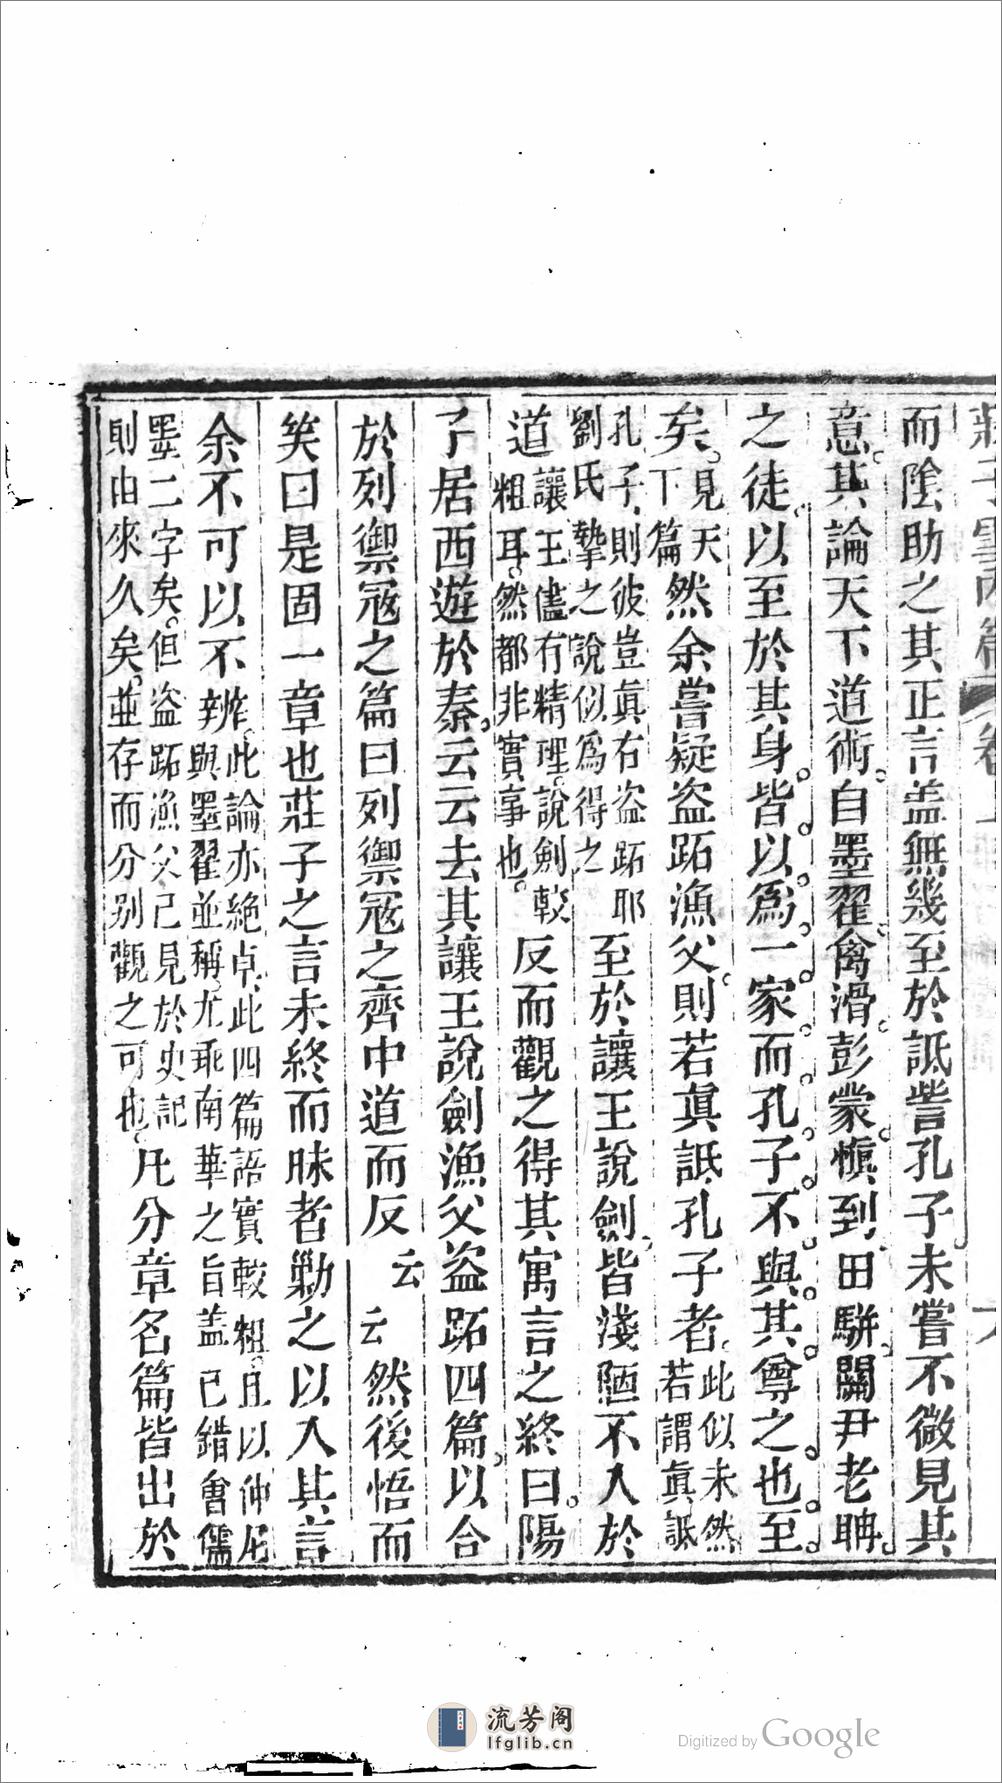 而陰助之其正言盖無幾至於詆訾孔子未嘗不微見其
意其論天下道術自墨翟禽滑彭蒙愼到田駢關尹老聃
之徒以至於其身皆以爲一家而孔子不與其尊之也至
矣見天下篇然余嘗疑盗跖漁父則若眞詆孔子者此似未然若謂眞詆
孔子則彼豈眞有盗跖耶劉氏摯之說似爲得之至於讓王說劍皆淺陋不入於
道讓王儘有精理說劍較粗耳然都非實事也反而觀之得其寓言之終曰陽
子居西遊於秦云云去其讓王說劍漁父盗跖四篇以合
於列禦冦之篇曰列禦冦之齊中道而反云云然後悟而
笑曰是固一章也莊子之言未終而昧者勦之以入其言
余不可以不辨此論亦絶卓此四篇語實較粗且以仲尼與墨翟並稱尤乖南華之旨盖已錯會儒
墨二字矣但盗跖漁父已見於史記則由來久矣並存而分别觀之可也凡分章名篇皆出於
流芳阁
lfglib.cn
Digitized by Google